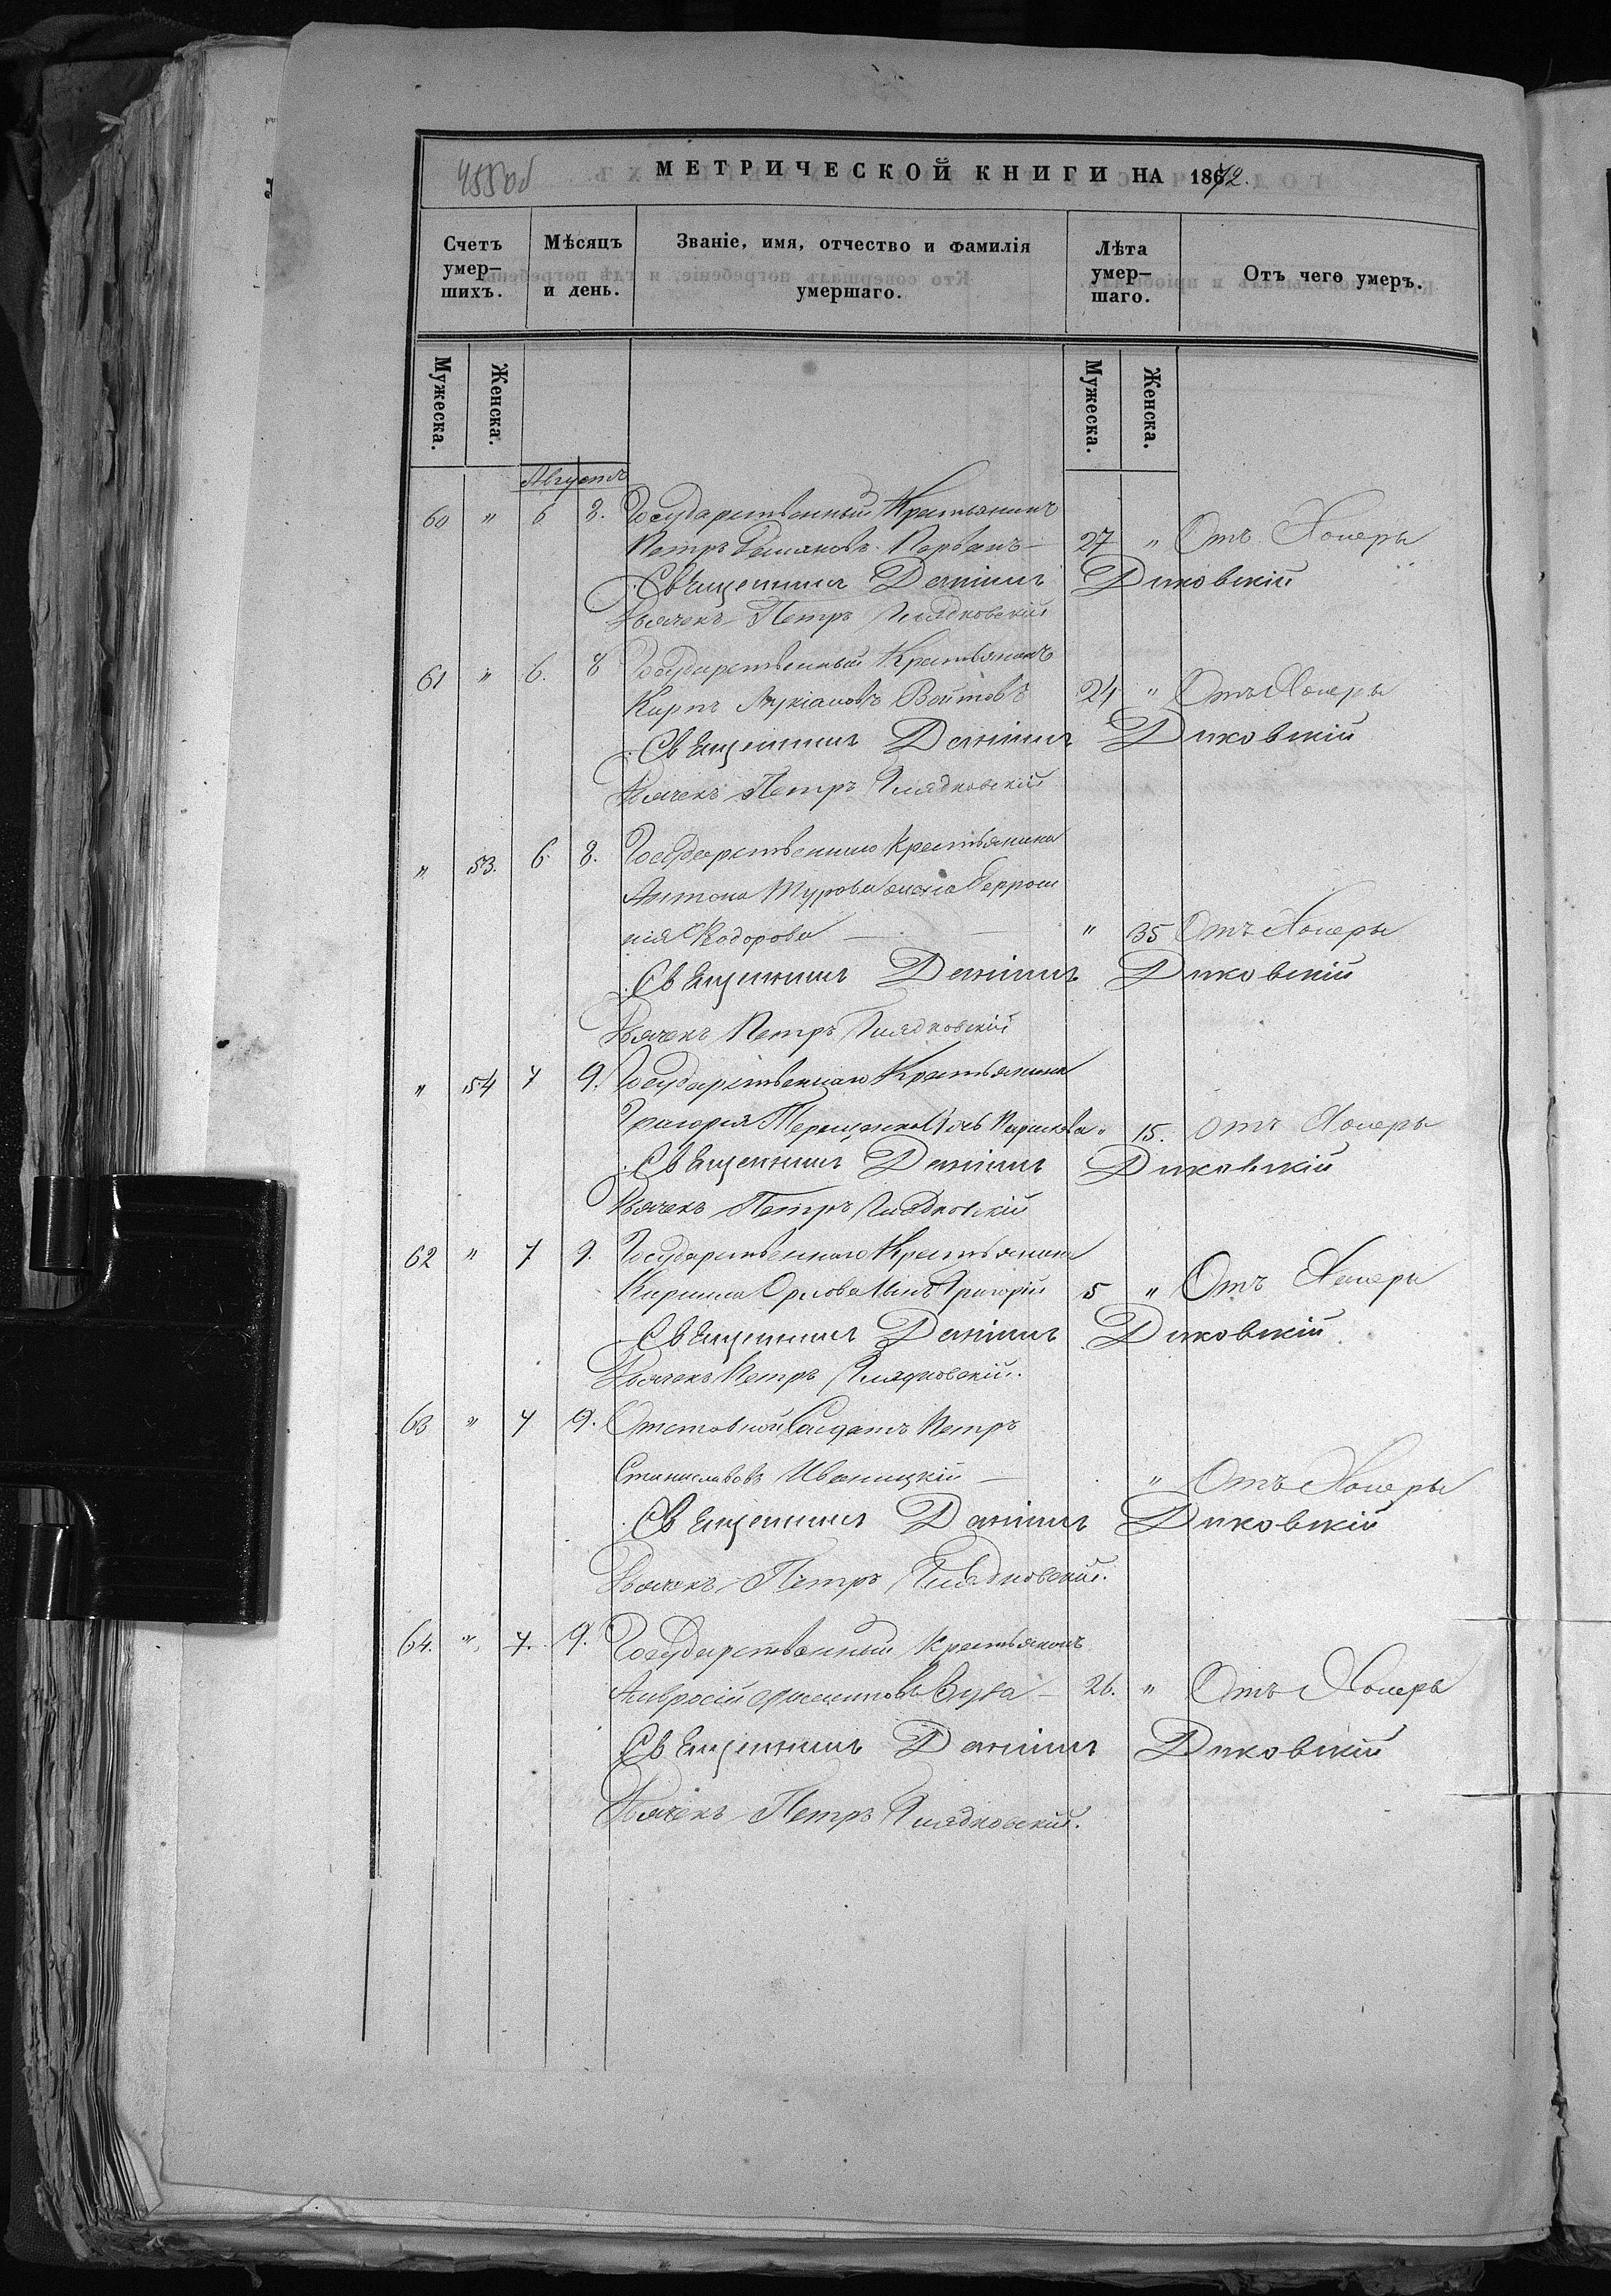 455об
МЕТРИЧЕСКОЙ КНИГИ НА 1872.
Счетъ умер-шихъ.
Мѣсяцъ и день.
Званіе, имя, отчество и фамилія умершаго.
Лѣта умер-шаго.
Отъ чего умеръ.
Мужеска. Женска. Мужеска. Женска.
Августъ
60 " 6 8. Государственный Крестьянинъ
Петръ 27 " Отъ Холеры
Священникъ Даніилъ Диковскій
Дьячекъ Петръ Гладковскій
61 " 6. 8 Государственный Крестьянинъ
Кирилъ Лукіановъ Войтовъ 24 " Отъ Холеры
Священникъ Даніилъ Диковскій
Дьячекъ Петръ Гладковскій
" 53. 6. 8. Государственнаго Крестьянина
Антона Турова жена
Ѳедорова " 35 Отъ Холеры
Священникъ Даніилъ Диковскій
Дьячекъ Петръ Гладковскій
" 54 7 9. Государственнаго Крестьянина
Григорія дочь 15. Отъ Холеры
Священникъ Даніилъ Диковскій
Дьячекъ Петръ Гладковскій
62 " 7 9. Государственнаго Крестьянина
Кирилла Орлова сынъ Григорій 5 " Отъ Холеры
Священникъ Даніилъ Диковскій
Дьячекъ Петръ Гладковскій.
63 " 7 9. Отставной Солдатъ Петръ
Станиславовъ Иваницкій " Отъ Холеры
Священникъ Даніилъ Диковскій
Дьячекъ Петръ Гладковскій.
64. " 7. 9. Государственный Крестьянинъ
Амвросій 26. " Отъ Холеры
Священникъ Даніилъ Диковскій
Дьячекъ Петръ Гладковскій.